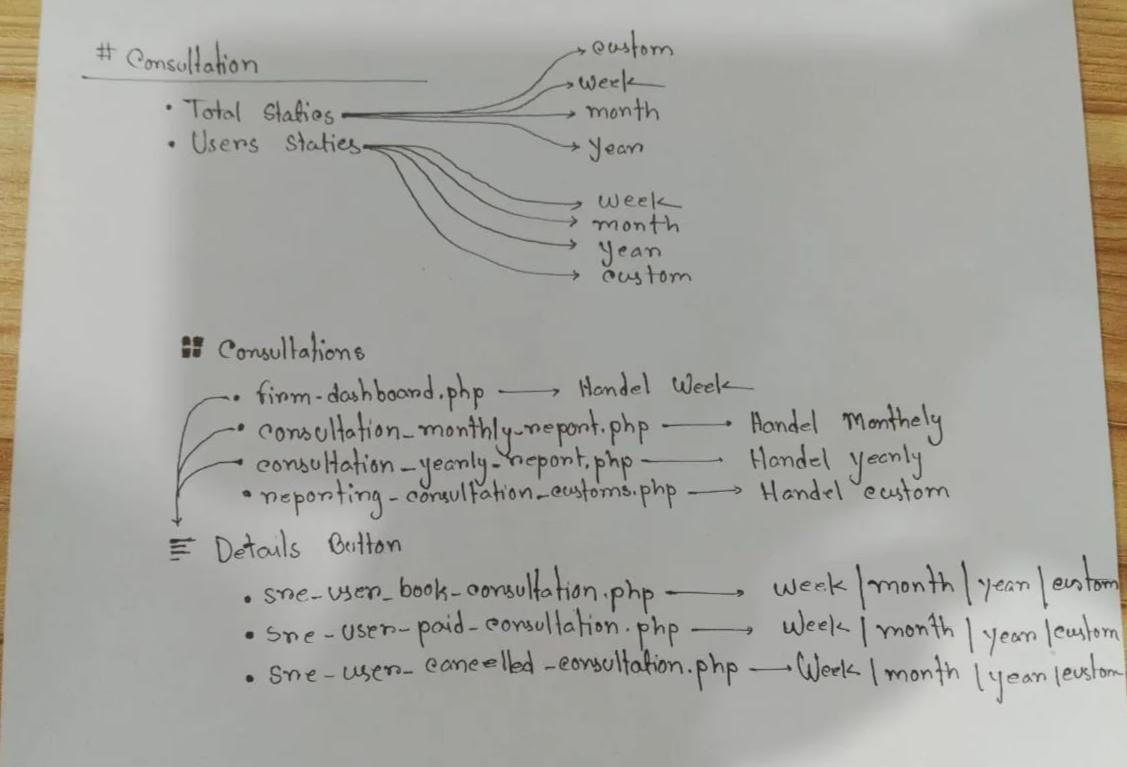 # Consultation
• Total Staties → custom
→ week
→ month
→ year
• Users Staties → week
→ month
→ year
→ custom
Consultations
• firm-dashboard.php → Handel Week
• consultation_monthly_report.php → Handel Monthely
• consultation_yearly_report.php → Handel yearly
• reporting-consultation_customs.php → Handel custom
Details Button
• sre-user_book-consultation.php → week | month | year | custom
• sre-user-paid-consultation.php → week | month | year | custom
• sre-user_cancelled-consultation.php → Week | month | year | custom